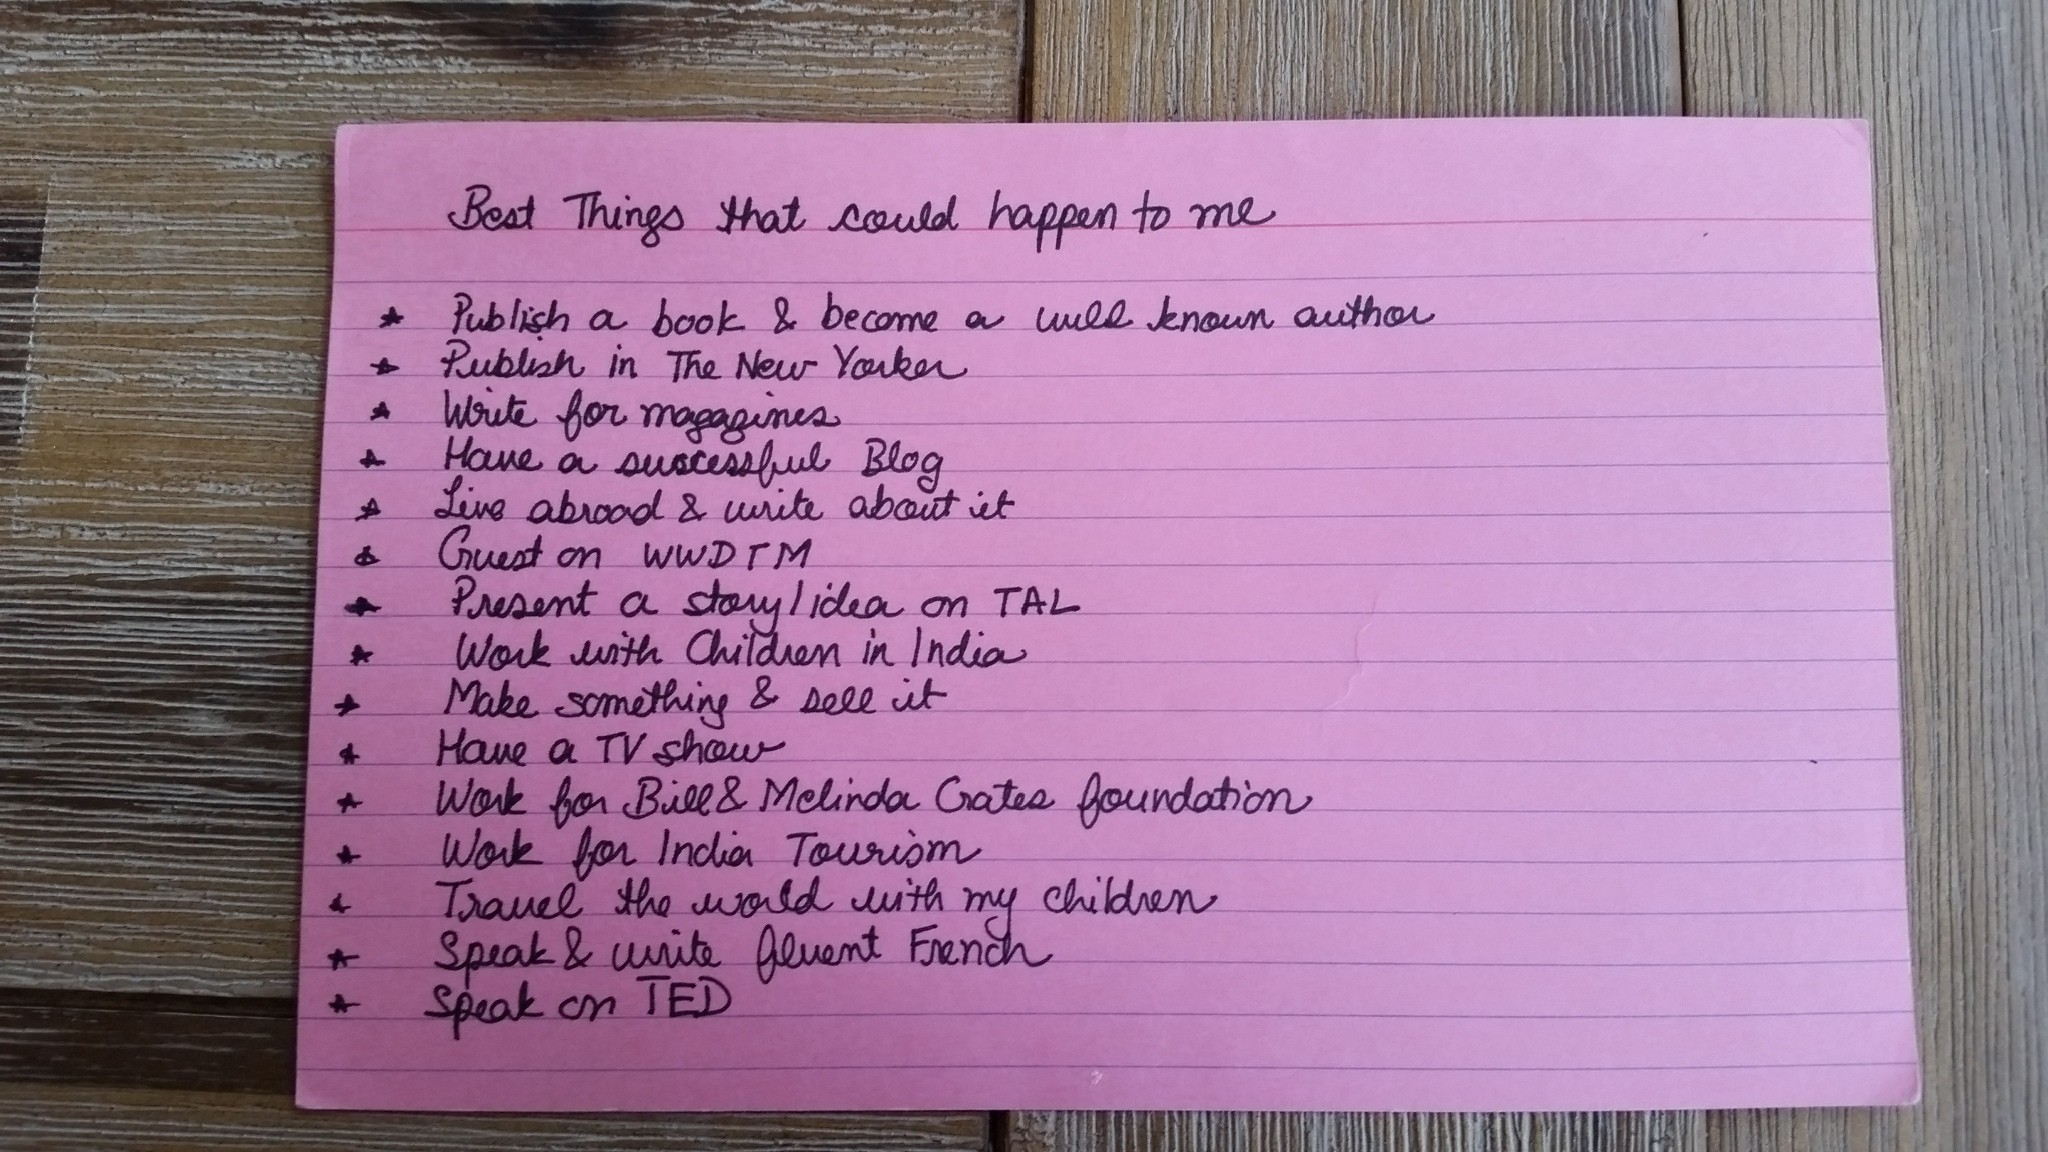 Best Things that could happen to me
* Publish a book & become a well known author
* Publish in The New Yorker
* Write for magazines
* Have a successful Blog
* Live abroad & write about it
* Guest on WWDTM
* Present a story/idea on TAL
* Work with Children in India
* Make something & sell it
* Have a TV show
* Work for Bill & Melinda Gates foundation
* Work for India Tourism
* Travel the world with my children
* Speak & write fluent French
* Speak on TED